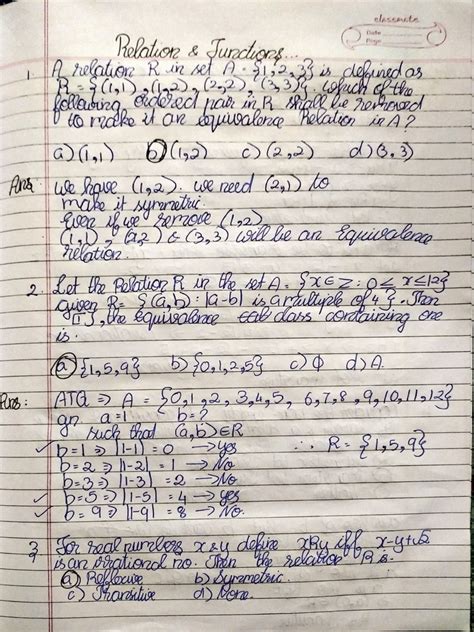 classmate
Date
Page
Relation & Functions...
1. A relation R in set A = {1, 2, 3} is defined as
R = {(1,1), (1,2), (2,2), (3,3)}. which of the
following ordered pair in R shall be removed
to make it an equivalence Relation in A?
a) (1,1) b) (1,2) c) (2,2) d) (3,3)
Ans: we have (1,2). we need (2,1) to
make it symmetric.
Even if we remove (1,2)
(1,1), (2,2) & (3,3) will be an Equivalence
relation.
2. Let the Relation R in the set A = {x ∈ Z : 0 ≤ x ≤ 12}
given R = {(a,b) : |a-b| is a multiple of 4}. Then
[1], the equivalence class containing one
is.
a) {1,5,9} b) {0,1,2,5} c) φ d) A.
Ans: ATQ ⇒ A = {0,1,2,3,4,5, 6,7,8,9,10,11,12}
gn a=1 b=?
such that (a,b) ∈ R
b=1 ⇒ |1-1| = 0 → yes ∴ R = {1,5,9}
b=2 ⇒ |1-2| = 1 → No
b=3 ⇒ |1-3| = 2 → No
b=5 ⇒ |1-5| = 4 → yes
b=9 ⇒ |1-9| = 8 → No.
3 For real numbers x & y define xRy iff x-y+√2
is an irrational no. Then the relation R is.
a) Reflexive b) Symmetric.
c) Transitive d) None.